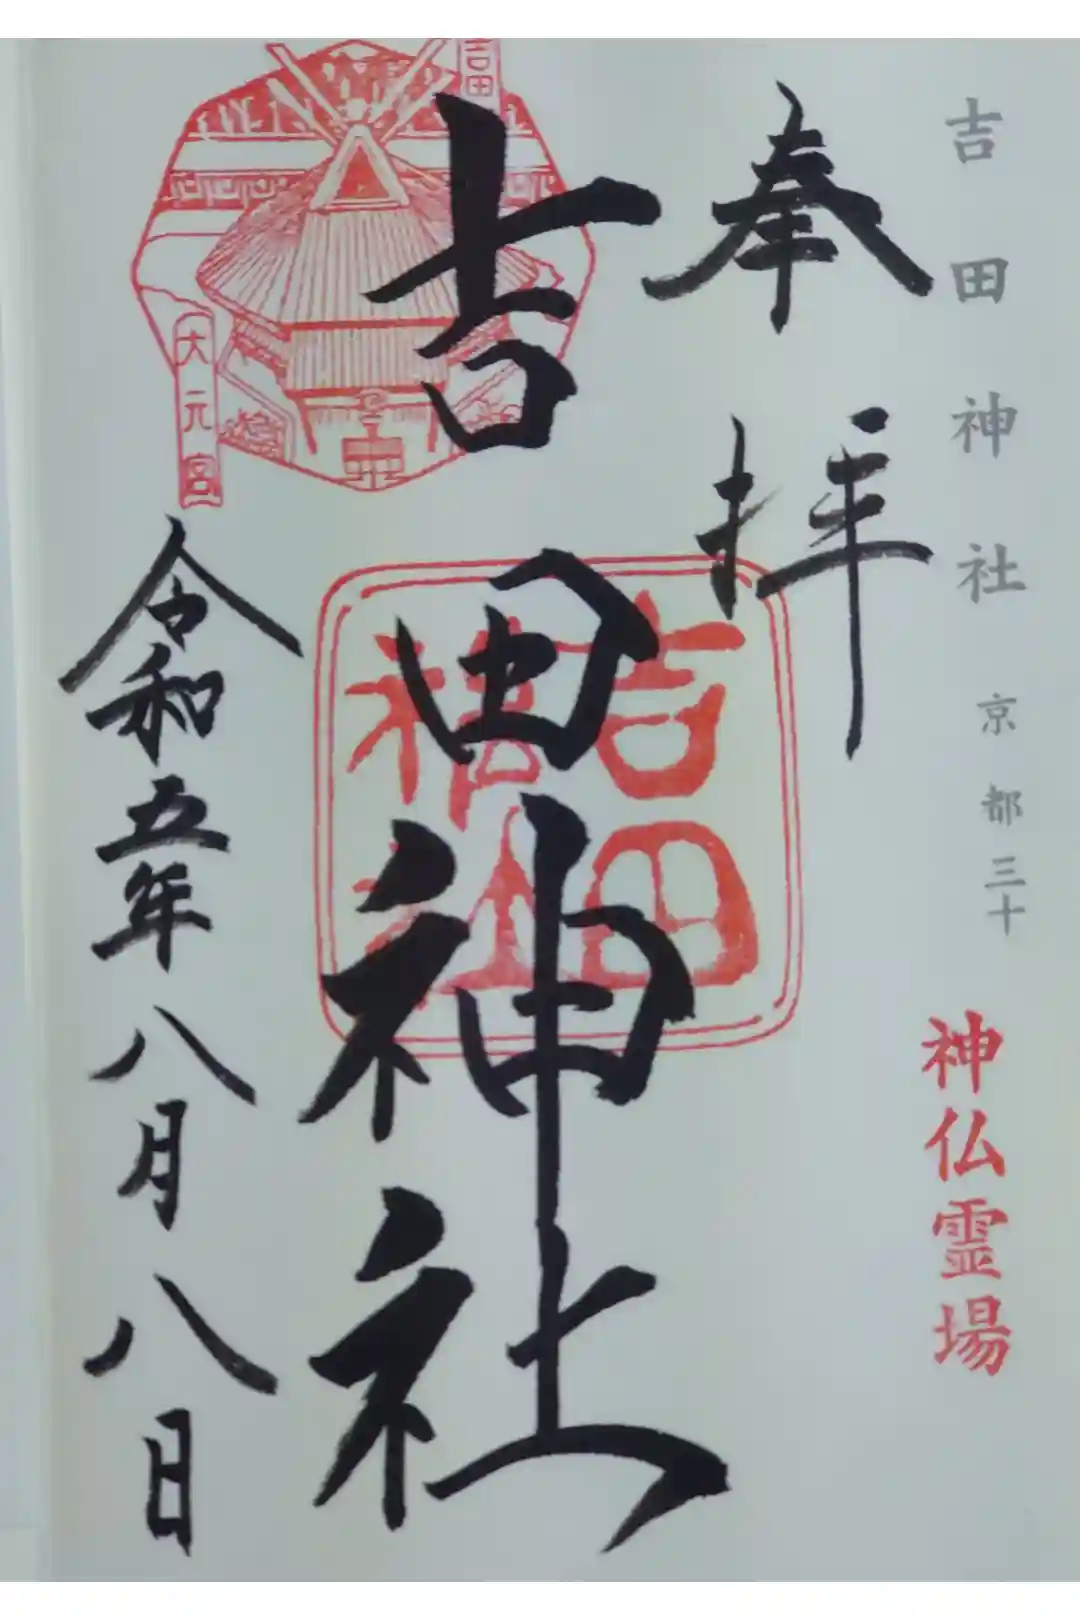 吉田神社 京都三十
神仏霊場
奉拝
吉田神社
吉田神社
令和五年八月八日
吉田
大元宮